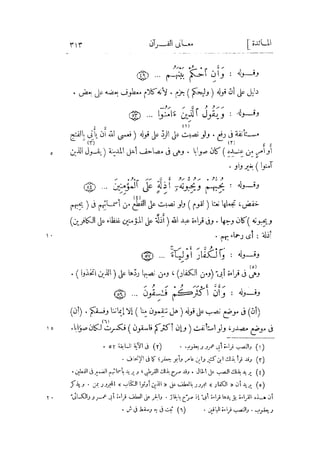 المائدة ] معانى القرآن ٣١٣
وقوله : وَأَنِ ٱحْكُم بَيْنَهُم ... ﴿٤٩﴾
دليل على أن قوله ( وليحكم ) جزم . لأنه كلام معطوف بعضه على بعض .
وقوله : وَيَقُولُ ٱلَّذِينَ ءَامَنُوٓا۟ ... ﴿٥٣﴾
مستأنفة فى رفع . ولو نصبت (١) على الردّ على قوله ( فعسى الله أن يأتى بالفتح
أو أمر من عنده ) (٢) كان صوابا . وهى فى مصاحف أهل المدينة (٣) ( يقول الذين ٥
آمنوا ) بغير واو .
وقوله : يُحِبُّهُمْ وَيُحِبُّونَهُۥٓ أَذِلَّةٍ عَلَى ٱلْمُؤْمِنِينَ ... ﴿٥٤﴾
خفض، تجعلها نعتا ( لقوم ) ولو نصبت على القطع (٤) من أسمائهم فى ( يحبهم
ويحبونه ) كان وجها . وفى قراءة عبد الله ( أذلة على المؤمنين غلظاء على الكافرين )
أذلة : أى رحماء بهم . ١٠
وقوله : وَٱلْكُفَّارَ أَوْلِيَآءَ ... ﴿٥٧﴾
وهى (٥) فى قراءة أبىّ ( ومن الكفار ) ، ومن نصبها ردّها على ( الذين اتخذوا ) .
وقوله : وَأَنَّ أَكْثَرَكُمْ فَٰسِقُونَ ... ﴿٥٩﴾
( أن ) فى موضع نصب على قوله ( هل تنقمون منا ) إلا إيماننا وفسقكم . ( أن )
فى موضع مصدر، ولو استأنفت ( وإن أكثركم فاسقون ) فكسرت (٦) لكان صوابا . ١٥
(١) والنصب قراءة أبى عمرو ويعقوب . (٢) فى الآية السابقة ٥٢ .
(٣) وقد قرأ بذلك ابن كثير وابن عامر وأبو جعفر، كما فى الإتحاف .
(٤) يريد بذلك النصب على الحال . وقد صرح بذلك القرطبى ؛ ويريد بأسمائهم الضمير فى الفعلين .
(٥) يريد أن « الكفار » مجرور بالعطف على « الذين أوتوا الكتاب » المجرور بمن . ويذكر
أن هذه القراءة يؤيدها قراءة أبىّ إذ صرّح بالجارّ . والجر على العطف قراءة أبى عمرو والكسائىّ ٢٠
ويعقوب . والنصب قراءة الباقين . (٦) ثبت فى ج، وسقط فى ش .